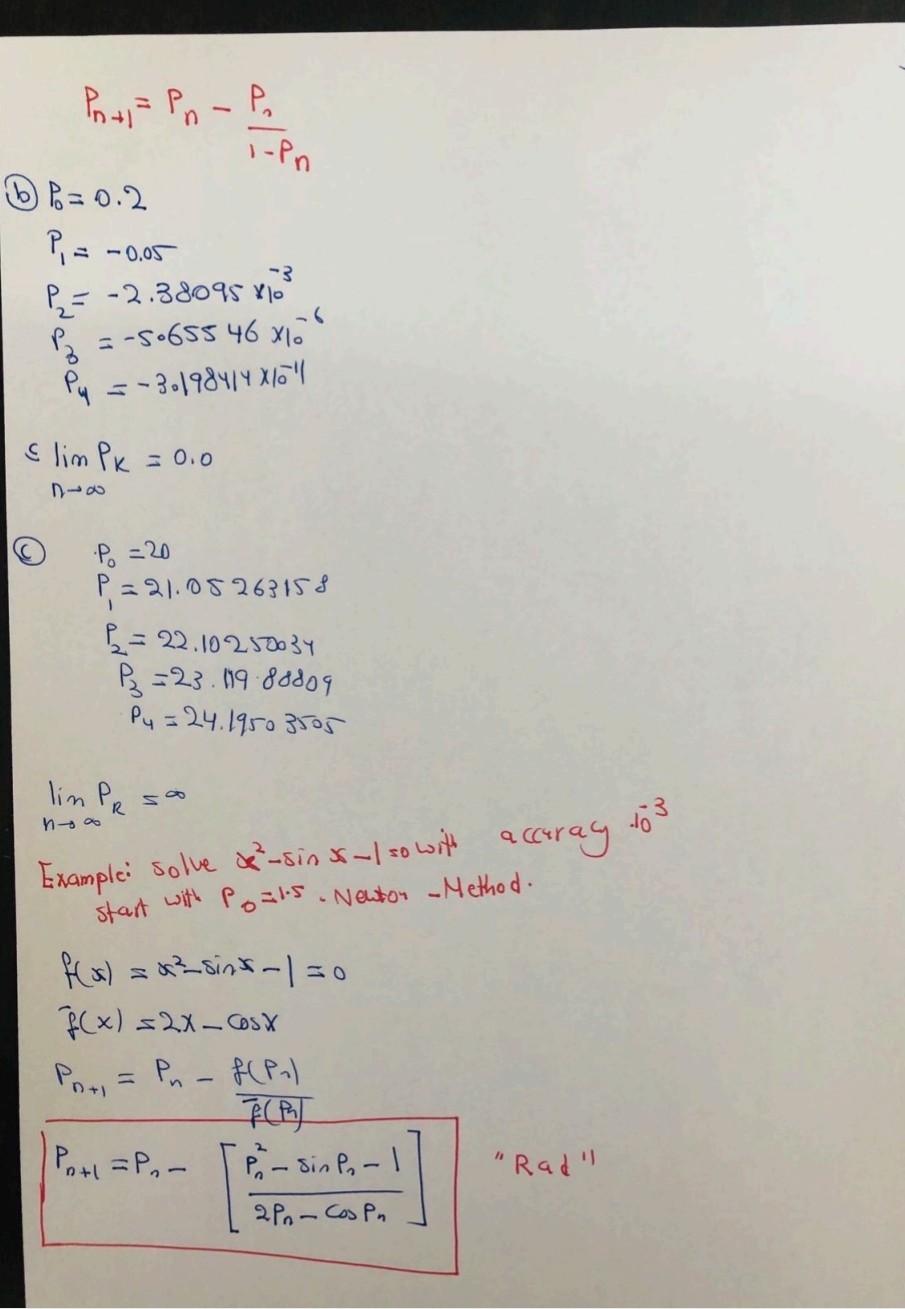 Pn+1 = Pn - Pn / 1-Pn
(b) P0 = 0.2
P1 = -0.05
P2 = -2.38095 x10^-3
P3 = -5.655 46 x10^-6
P4 = -3.198414 x10^-11
c lim PK = 0.0
n→∞
(c) P0 = 20
P1 = 21.05263158
P2 = 22.10250034
P3 = 23.11988809
P4 = 24.19503505
lim PK = ∞
n→∞
Example: solve x²-sin x-1=0 with accuray 10^-3
start with P0=1.5. Newton -Method.
f(x) = x²-sinx-1=0
f'(x) = 2x-cosx
Pn+1 = Pn - f(Pn) / f'(Pn)
Pn+1 = Pn - [Pn² - sin Pn - 1 / 2Pn - cos Pn] "Rad"